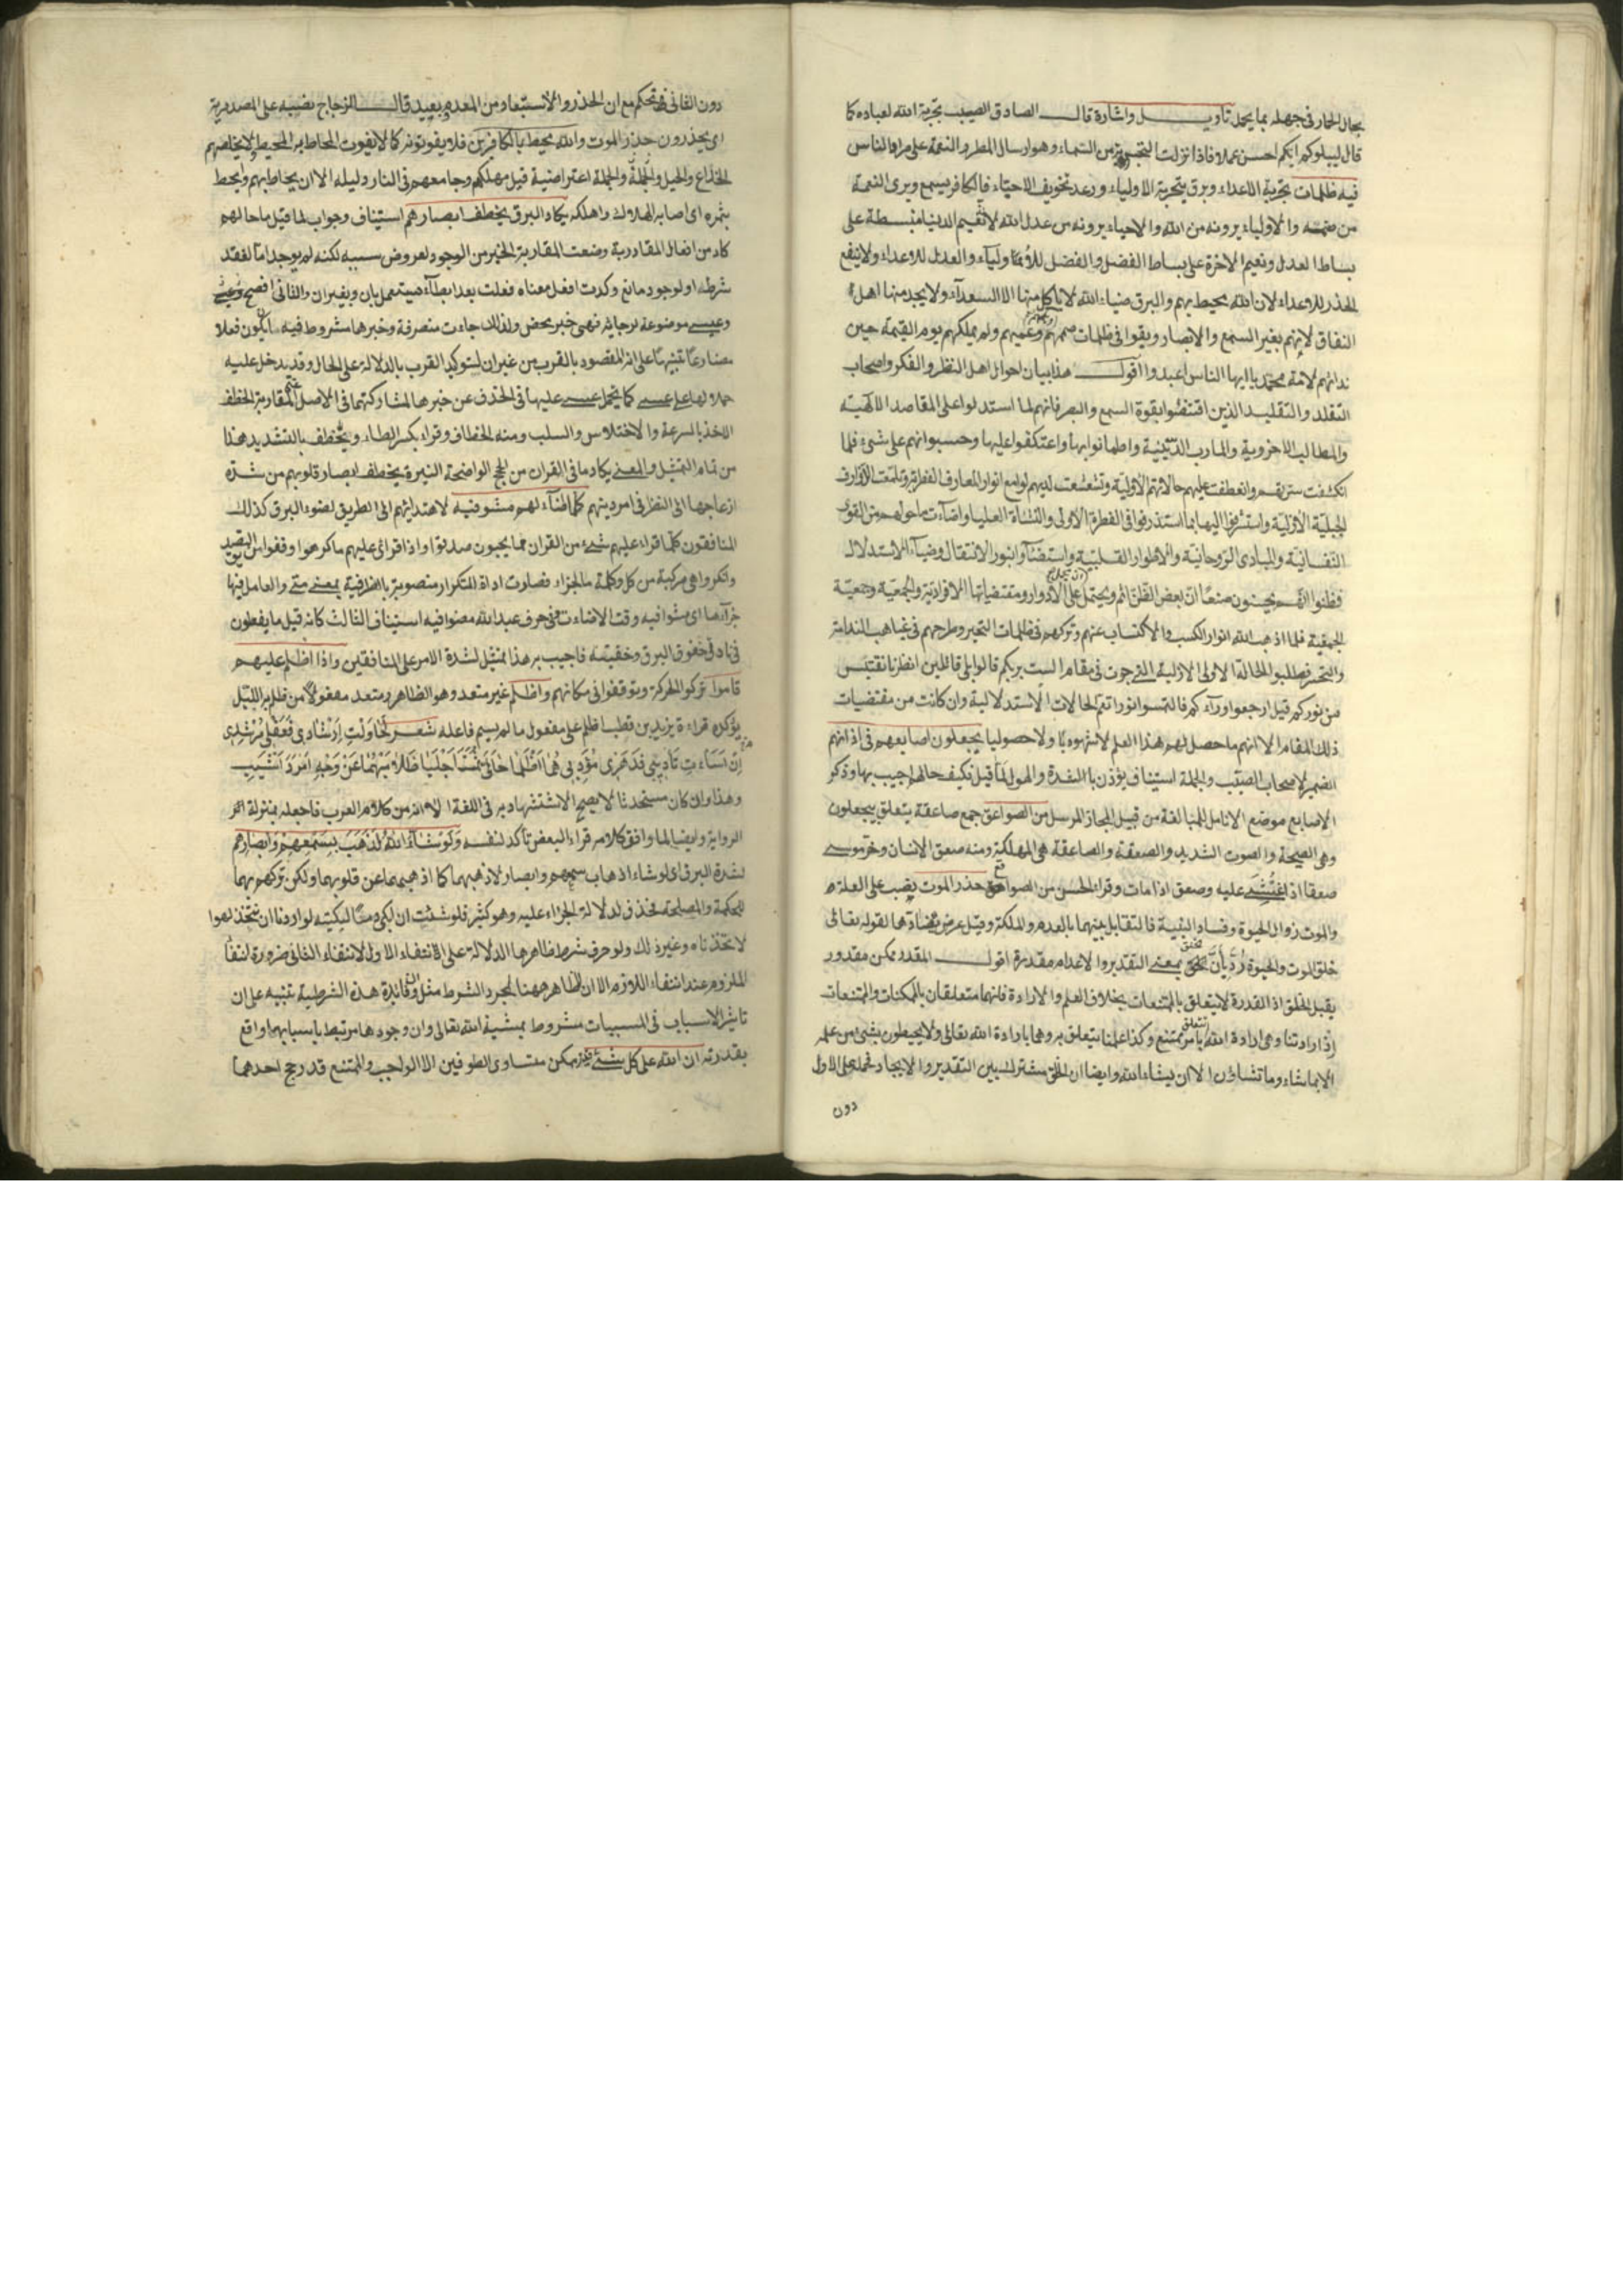 بحال الحمار فى جهله بما يحمل تاويل واشارة قال الصادق الصيب تجربة الله لعباده كما
قال ليبلوكم ايكم احسن عملا فاذا نزلت التجربة من السماء وهو ارسال المطر والنعمة على مراد الناس
فيه ظلمات تجربة الاعداء وبرق تجربة الاولياء ورعد تخويف الاحباء فالكافر يسمع ويرى النعمة
من والاولياء يرونه من الله والاحباء يرونه من عدل الله لا نعيم الدنيا منبسطة على
بساط العدل ونعيم الاخرة على بساط الفضل والفضل للاولياء والعدل للاعداء ولا ينفع
الحذر للاعداء لان الله محيط بهم والبرق ضياء الله لا ياكل منها الا السعداء ولا يجد منها اهل
النفاق لانهم بغير السمع والابصار وبقوا فى ظلمات صممهم وعميهم ولم يملكهم يوم القيمة حين
ندائهم لامة محمد يا ايها الناس اعبدوا اقول هذا بيان احوال اهل النظر والفكر واصحاب
التقلد والتقليد الذين اقتفوا بقوة السمع والبصر فانهم لما استدلوا على المقاصد الالهية
والمطالب الاخروية والمارب الدينية واطمانوا بها واعتكفوا عليها وحسبوا انهم على شىء فلما
انكشفت وانعطفت عليهم حالاتهم الاولية وتشعشعت لديهم لوامع انوار المعارف الفطرية
الجبلية الاولية واستشرفوا اليها فى الفطرة الاولى والنشاة العليا واضاءت ما حولهم من القوى
النفسانية والمبادى الروحانية والاطوار القلبية واستضاوا بنور الانتقال وضياء الاستدلال
فظنوا انهم يحسنون صنعا ان بعض الظن اثم ويحتمل على الادوار ومقتضياتها الافرادية والجمعية وجمعية
الجمعية فلما اذهب الله انوار الكسب والاكتساب عنهم وتركهم فى ظلمات التحير وطرحهم فى غياهب الندامة
والتحسر فطلبوا الحالة الاولى الازلية التى جرت فى مقام الست بربكم قالوا بلى قائلين انظرنا نقتبس
من نوركم قيل ارجعوا وراءكم فالتمسوا نورا تعم الحالات الاستدلالية وان كانت من مقتضيات
ذلك المقام الا انهم ما حصل لهم هذا العلم لا شهوديا ولا حصوليا يجعلون اصابعهم فى اذانهم
الضمير لاصحاب الصيب والجملة استيناف يؤذن بالشدة والهول لما قيل فكيف حالهم اجيب بها وذكر
الاصابع موضع الانامل للمبالغة من قبيل المجاز المرسل من الصواعق جمع صاعقة يتعلق بيجعلون
وهى الصيحة والصوت الشديد والصعقة والصاعقة هى المهلكة ومنه صعق الانسان وخر موسى
صعقا اذ اغشى عليه وصعق اذا مات وقراء الحسن من الصواقع حذر الموت نصب على العلة
والموت زوال الحيوة وفساد البنية فالتقابل بينهما بالعدم والملكة وقيل عرض يضادها لقوله تعالى
خلق الموت والحيوة رد بان الخلق بمعنى التقدير والاعدام مقدرة اقول المقدر ممكن مقدور
يقبل الخلق اذ القدرة لا يتعلق بالممتنعات بخلاف العلم والارادة فانهما متعلقان بالممكنات والممتنعات
اذ ارادتنا وهى ارادة الله بامر ممتنع وكذا علمنا يتعلق به وهما بارادة الله تعالى ولا يحيطون بشىء من علمه
الا بما شاء وما تشاؤن الا ان يشاء الله وايضا ان الخلق مشترك بين التقدير والايجاد فحمله على الاول
دون
دون الثانى تحكم مع ان الحذر والاستبعاد من المعدوم بعيد قال الزجاج نصبه على المصدرية
اى يحذرون حذر الموت والله محيط بالكافرين فلا يفوتونه كما لا يفوت المحاط به المحيط لا يخلصهم
الخداع والحيل والجملة اعتراضية قيل مهلكهم وجامعهم فى النار دليله الا ان يحاط بهم واحيط
بثمره اى اصابه الهلاك واهلكه يكاد البرق يخطف ابصارهم استيناف وجواب لما قيل ما حالهم
كاد من افعال المقاربة وضعت المقاربة الخبر من الوجود لعروض سببه لكنه لم يوجد اما لفقد
شرطه او لوجود مانع وكدت افعل معناه فعلت بعد ابطاء يستعمل بان وبغير ان والثانى افصح
وعسى موضوعة لرجائه فهى خبر محض ولذلك جاءت متصرفة وخبرها مشروط فيه ان يكون فعلا
مضارعا تنبيها على انه المقصود بالقرب من غير ان لتوكيد القرب بالدلالة على الحال وقد يدخل عليه
حملا لها على عسى كما يحمل عسى عليها فى الحذف عن خبرها لمشاركتهما فى الاصل المقاربة الخطف
الاخذ بالسرعة والاختلاس والسلب ومنه الخطاف وقراء بكسر الطاء ويخطف بالتشديد هذا
من تمام التمثيل والمعنى يكاد ما فى القران من الحجج الواضحة النيرة يخطف ابصار قلوبهم من شدة
ازعاجها الى النظر فى امر دينهم كلما اضاء لهم مشوا فيه لاهتدائهم الى الطريق لضوء البرق كذلك
المنافقون كلما قراء عليهم شىء من القران مما يحبون صدقوا واذا قراى عليهم ما كرهوا وقفوا من التصديق
وانكروا هى مركبة من كل وكلمة ما الجزاء فصارت اداة التكرار منصوبة بالظرفية بمعنى متى والعامل فيها
جزاءها اى مشوا فيه وقت الاضاءت وفى حرف عبد الله مضوا فيه استيناف الثالث كانه قيل ما يفعلون
فى خفوق البرق وخفيته فاجيب به هذا تمثيل لشدة الامر على المنافقين واذا اظلم عليهم
قاموا تركوا الحركة وتوقفوا فى مكانهم واظلم غير متعد وهو الظاهر ومتعد مفعولا من ظلم الليل
يؤكده قراءة يزيد بن قطيب اظلم على مفعول ما لم يسم فاعله شعر احاولت ارشادى فعقلى مرشدى
ان اساءت تاديبى فدهرى مؤدبى هما اظلما حالى ثمت اجليا ظلاميهما عن وجه امرد اشيب
وهذا وان كان مستحدثا لا يصح الاستشهاد به فى اللغة الا انه من كلام العرب فاجعله بمنزلة اثر
الرواية وايضا لما وافق كلامه قراء البعض تاكد لنفسه ولو شاء الله لذهب بسمعهم وابصارهم
لشدة البرق اى لو شاء اذهاب سمعهم وابصارهم لاذهبهما كما اذهبهما عن قلوبهما ولكن تركهم بهما
للحكمة والمصلحة فحذف لدلالة الجزاء عليه وهو كثير فلو شئت ان ابكى دما لبكيته لو اردنا ان نتخذ لهوا
لاتخذناه وغير ذلك ولو حرف شرط ظاهرها الدلالة على انتفاء الاول لانتفاء الثانى ضرورة انتفاء
الملزوم عند انتفاء اللازم الا ان الظاهر ههنا لمجرد الشرط مثل وفائدة هذه الشرطية تنبيه على ان
تاثير الاسباب فى المسببات مشروط بمشية الله تعالى وان وجودها مرتبط باسبابها واقع
بقدرته ان الله على كل شىء قدير ممكن متساوى الطرفين الا الواجب والممتنع قد رجح احدهما